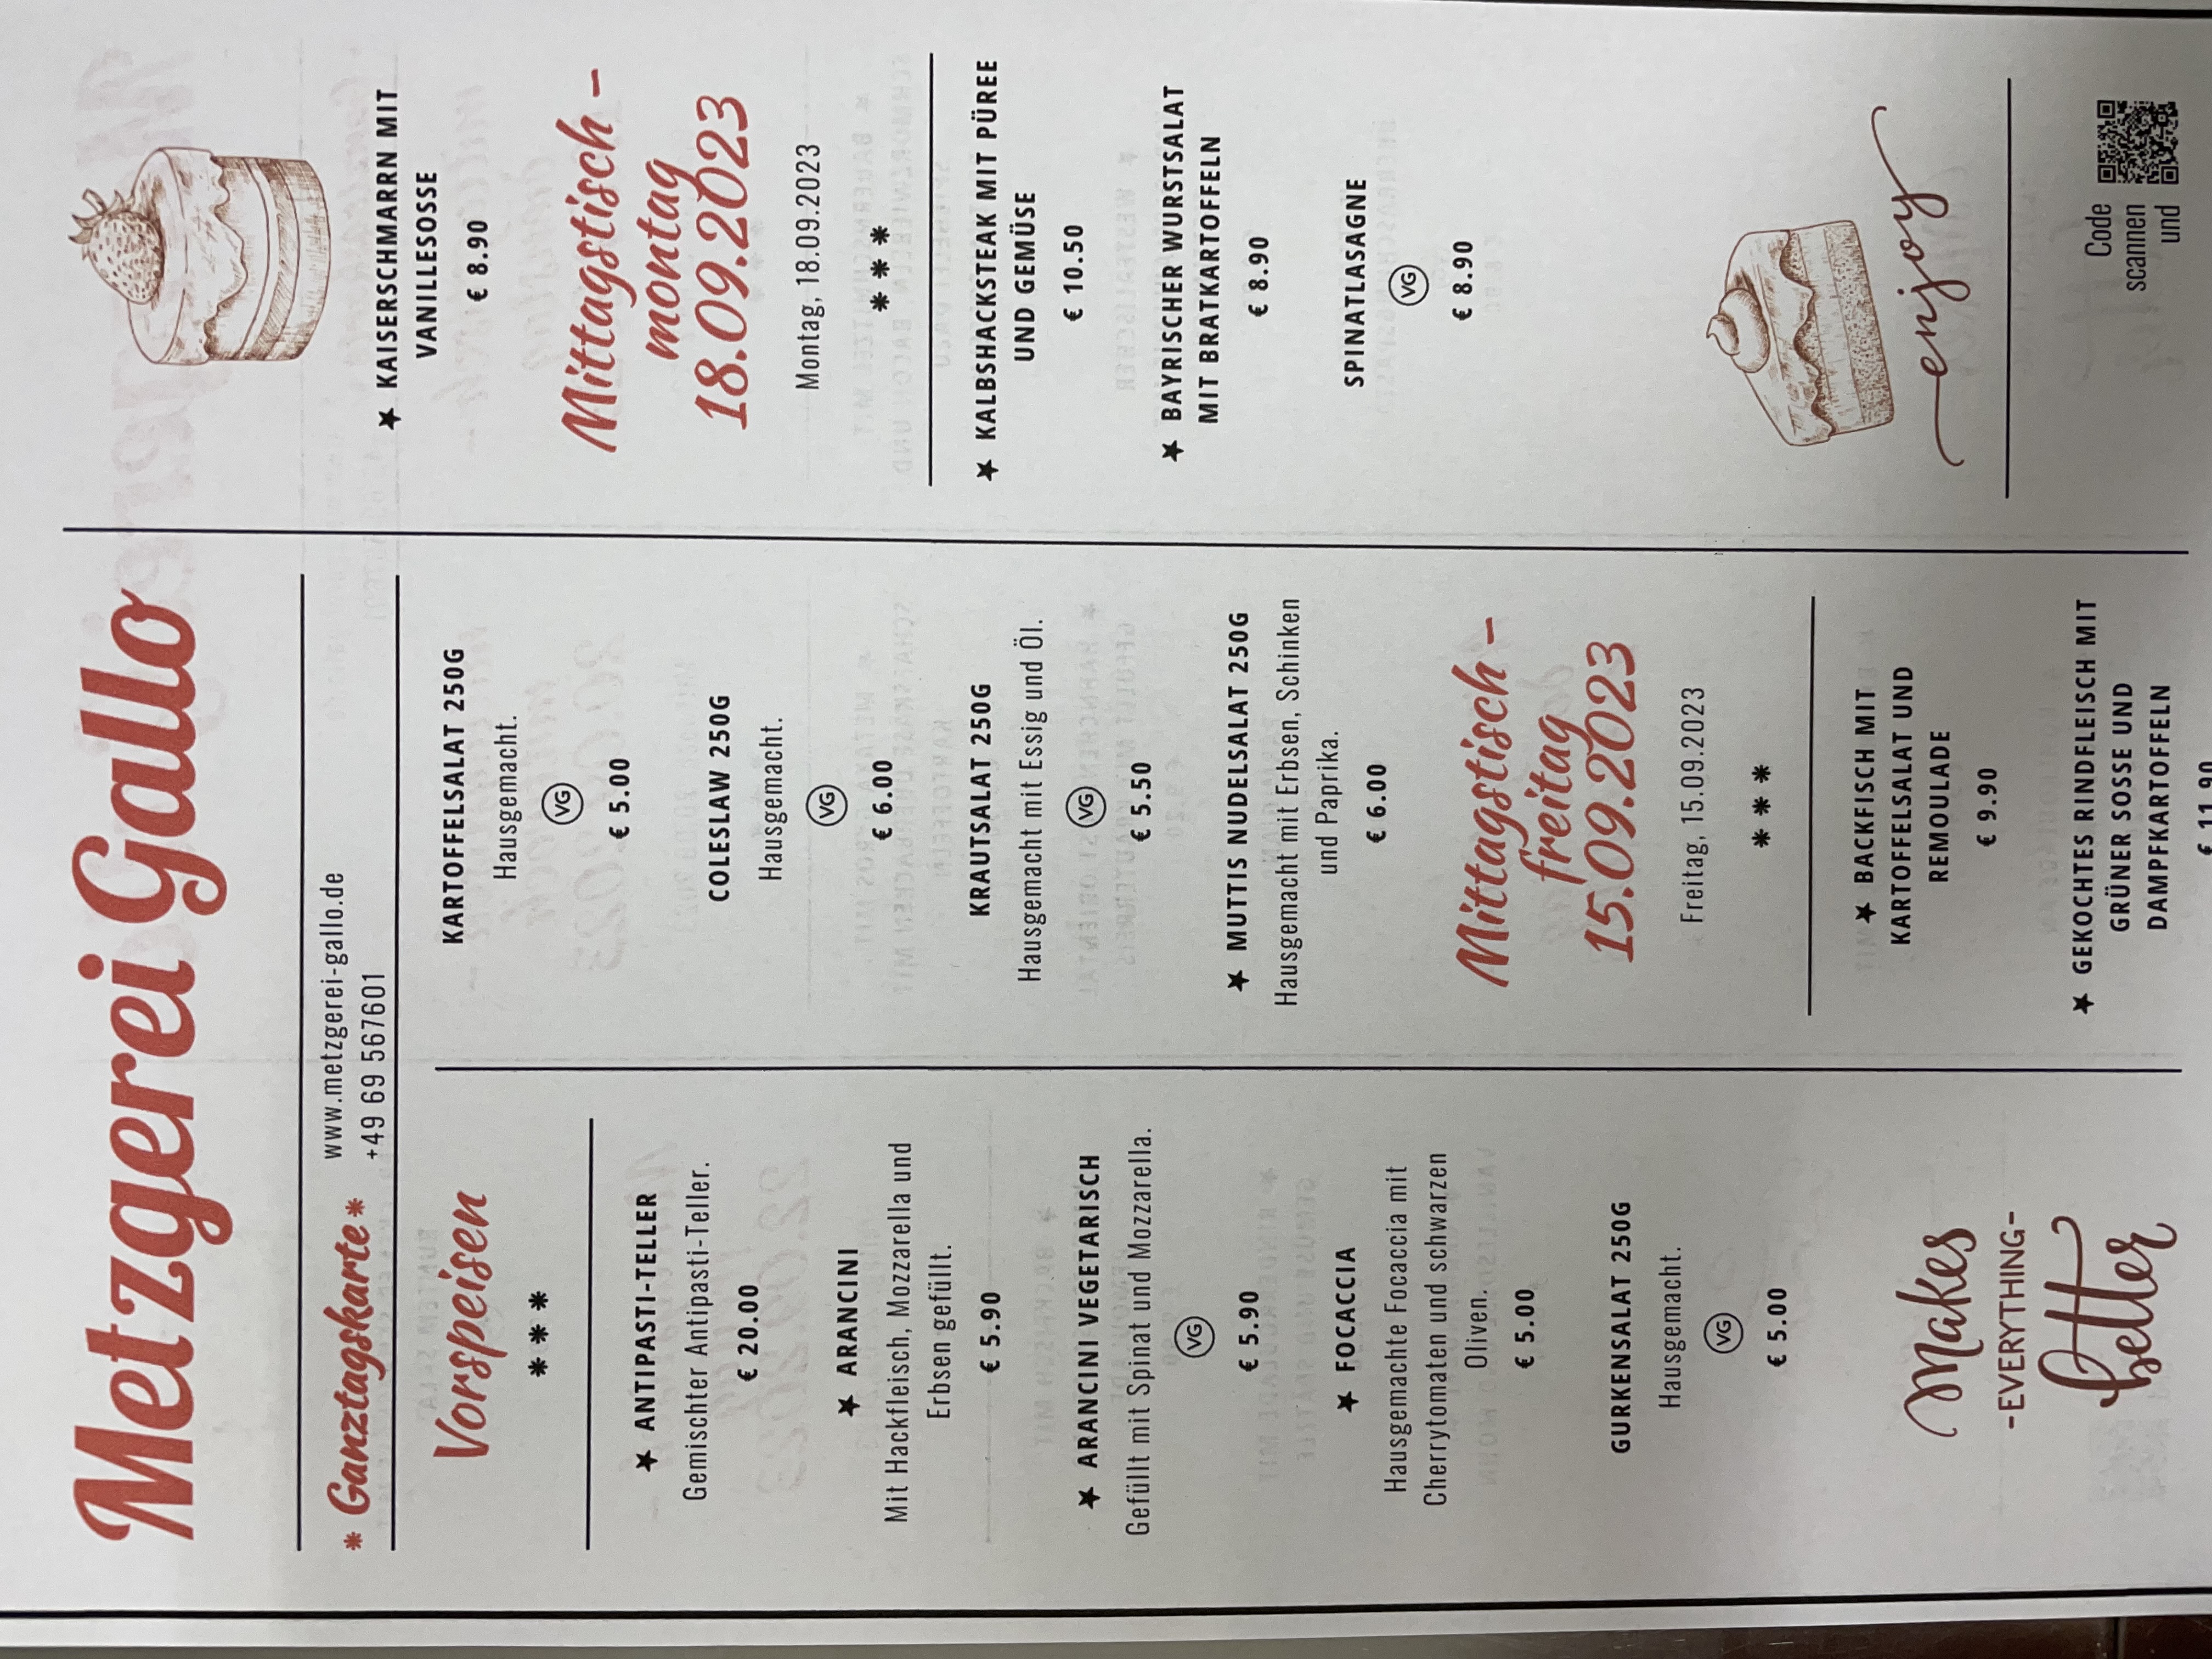 Metzgerei Gallo
* Ganztagskarte *
www.metzgerei-gallo.de
+49 69 567601
Vorspeisen
* * *
★ ANTIPASTI-TELLER
Gemischter Antipasti-Teller.
€ 20.00
★ ARANCINI
Mit Hackfleisch, Mozzarella und
Erbsen gefüllt.
€ 5.90
★ ARANCINI VEGETARISCH
Gefüllt mit Spinat und Mozzarella.
VG
€ 5.90
★ FOCACCIA
Hausgemachte Focaccia mit
Cherrytomaten und schwarzen
Oliven.
€ 5.00
GURKENSALAT 250G
Hausgemacht.
VG
€ 5.00
Makes
-EVERYTHING-
better
KARTOFFELSALAT 250G
Hausgemacht.
VG
€ 5.00
COLESLAW 250G
Hausgemacht.
VG
€ 6.00
KRAUTSALAT 250G
Hausgemacht mit Essig und Öl.
VG
€ 5.50
★ MUTTIS NUDELSALAT 250G
Hausgemacht mit Erbsen, Schinken
und Paprika.
€ 6.00
Mittagstisch -
freitag
15.09.2023
Freitag, 15.09.2023
* * *
★ BACKFISCH MIT
KARTOFFELSALAT UND
REMOULADE
€ 9.90
★ GEKOCHTES RINDFLEISCH MIT
GRÜNER SOSSE UND
DAMPFKARTOFFELN
€ 11.90
★ KAISERSCHMARRN MIT
VANILLESOSSE
€ 8.90
Mittagstisch -
montag
18.09.2023
Montag, 18.09.2023
* * *
★ KALBSHACKSTEAK MIT PÜREE
UND GEMÜSE
€ 10.50
★ BAYRISCHER WURSTSALAT
MIT BRATKARTOFFELN
€ 8.90
SPINATLASAGNE
VG
€ 8.90
enjoy
Code
scannen
und